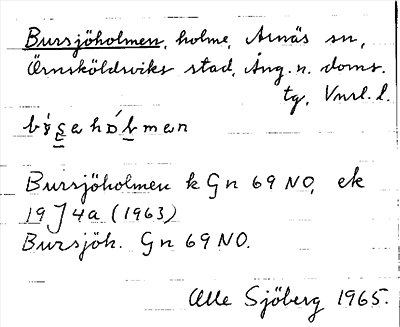 Bursjöholmen, holme, Arnäs sn,
Örnsköldsviks stad, Ång. n. doms.
tg, Vnrl. l.
Bursjöholmen k Gn 69 NO, ek
19 J 4a (1963)
Bursjöh. Gn 69 NO.
Olle Sjöberg 1965.